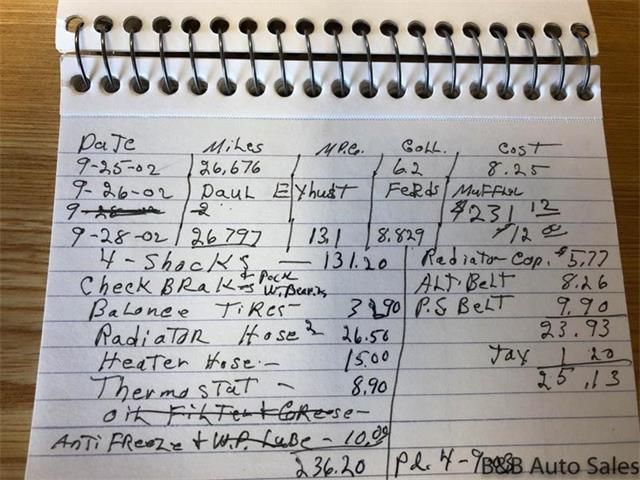 Date Miles M.P.G. Gall. Cost
9-25-02 26,676 6.2 8.25
9-26-02 Daul Exhust Ferds Muffler
9-28-02 2 $231 12
9-28-02 26797 13.1 8.829 $12 00
4-Shocks — 131.20
Radiator Cap. $5.77
Check BRakes + Pack W. Bear.
ALT. Belt 8.26
Balance Tires - 31.90
P.S Belt 9.90
Radiator Hose 2 26.50
23.93
Heater Hose - 15.00
Tax 1 20
Thermostat - 8.90
25,13
Oil Filter & Grease -
Antifreeze + W.P. Lube - 10.00
236.20 Pd. 4-9-03
B&B Auto Sales